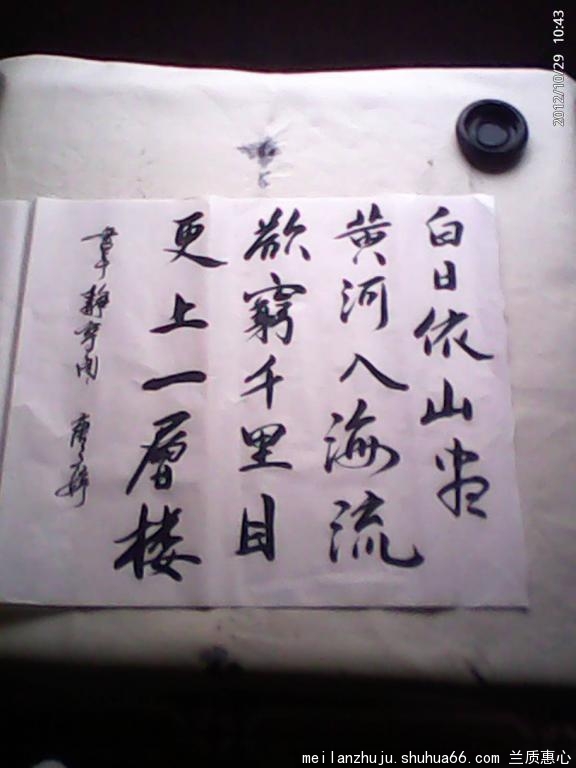 白日依山尽
黄河入海流
欲窮千里目
更上一層楼
書于靜亭
2012/10/29 10:43
meilanzhuju.shuhua66.com 兰质惠心